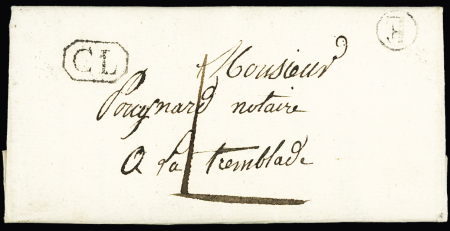 CL
Monsieur
Pouynard notaire
a la tremblade